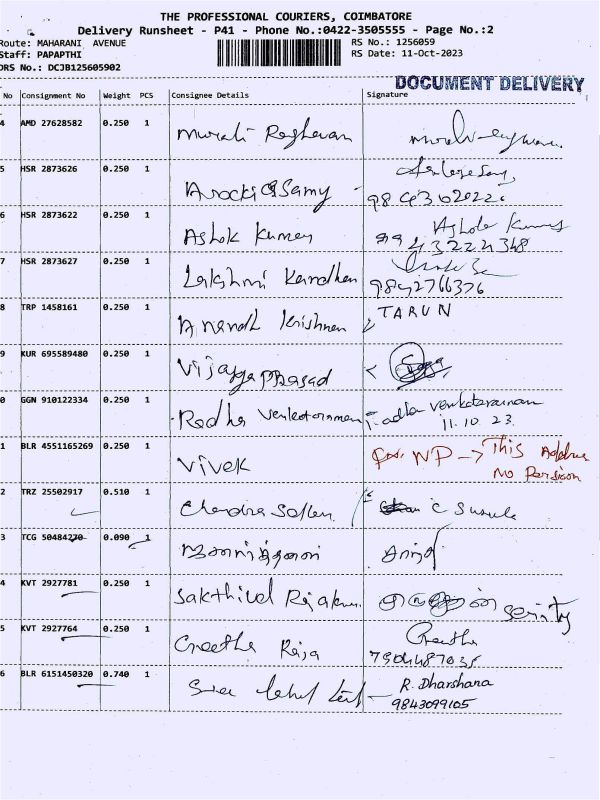 THE PROFESSIONAL COURIERS, COIMBATORE
Delivery Runsheet - P41 - Phone No.:0422-3505555 - Page No.:2
Route: MAHARANI AVENUE
RS No.: 1256059
Staff: PAPAPTHI
RS Date: 11-Oct-2023
DRS No.: DCJB125605902
DOCUMENT DELIVERY
No Consignment No Weight PCS Consignee Details Signature
4 AMD 27628582 0.250 1 Murali Raghavan
5 HSR 2873626 0.250 1 Arockiasamy -
6 HSR 2873622 0.250 1 Ashok Kumar Ashok Kumar
9943222348
7 HSR 2873627 0.250 1 Lakshmi Kandhan
9842766376
8 TRP 1458161 0.250 1 Anandh Krishnan TARUN
9 KUR 695589480 0.250 1 Vijayaprasad
0 GGN 910122334 0.250 1 Radha Venkataraman Radha Venkataraman
11.10.23.
1 BLR 4551165269 0.250 1 Vivek NP → This Address
No Persion
2 TRZ 25502917 0.510 1 Chandra Saken C Susula
3 TCG 50484270 0.090 1
4 KVT 2927781 0.250 1 Sakthivel Rajakumar
5 KVT 2927764 0.250 1 Geetha Raja Geetha
7904487035
6 BLR 6151450320 0.740 1 Sree R. Dharshana
9843099105